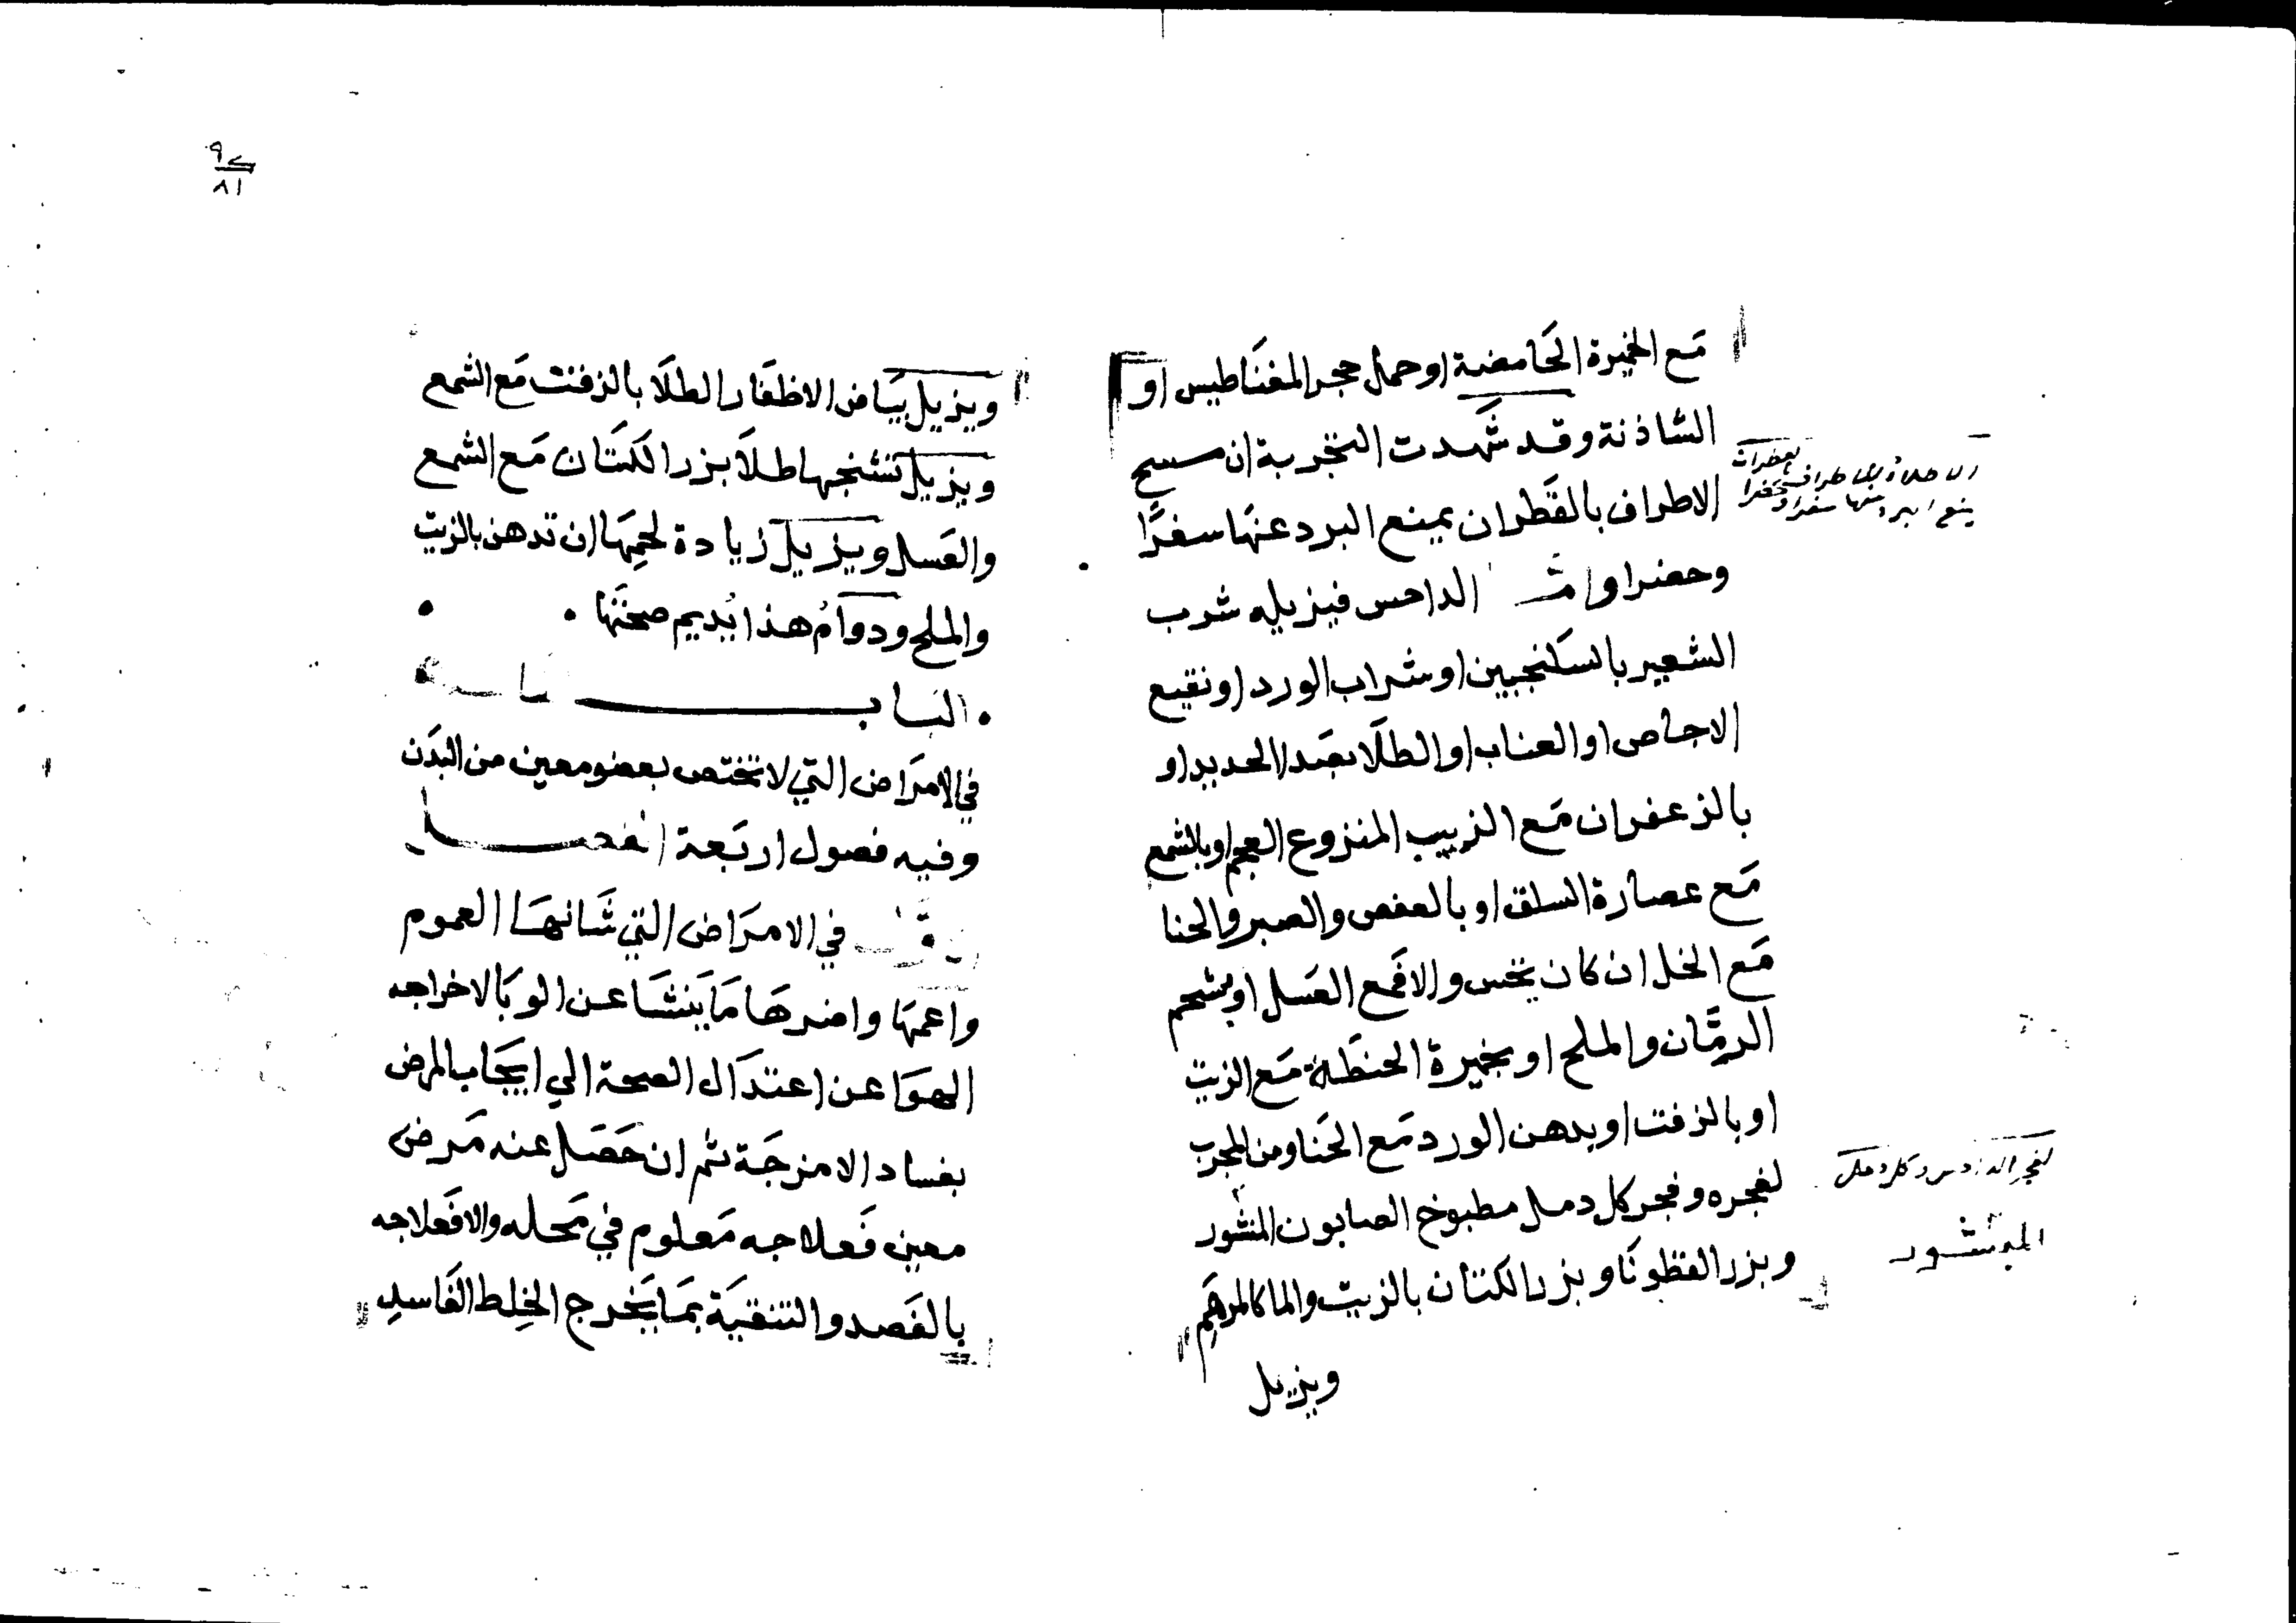 مَع الخميرة الحَامضة او حمل حجر المغنَاطيس او
الشاذنة وقد شَهدت التجربة ان مسح
الاطراف بالقَطران يمنع البرد عنهَا سفرًا
وحضرا واما الداحس فيزيله شرب
الشعير بالسكنجبين او شراب الورد او نقيع
الاجاص او العناب او الطلَا بصَدا الحديد او
بالزعفران مَع الزبيب المنزوع العجم او بالشمع
مَع عصارة السلق او بالعفص والصبر والحنا
مَع الخل ان كان نخس والا فمَع العَسل او بشحم
الرمَّان والملح او بخميرة الحنطَة مَع الزيت
او بالزفت او بدهن الورد مَع الحَنا ومن المجرب
لفجره وفجر كل دمل مطبوخ الصابون المنشور
وبزر القطونَا وبزر الكتان بالزيت والما كالمرهَم
ويزيل
المبشور
٩٢
٨١
ويزيل بيَاض الاظفَار الطلَا بالزفت مَع الشمع
ويزيل تشنجها طلَا بزر الكتَان مَع الشمع
والعَسل ويزيل زيادة لحمِهَا ان تدهن بالزيت
والملح ودوَامُ هذا يُديم صحتَها
البَاب
في الامرَاض التي لا تختص بعضو معين من البَدَن
وفيه فصول اربَعة الفصل
في الامرَاض التي شَانهَا العموم
واعمهَا واضرهَا مَا يَنشَا عن الوبَا لاخراجه
الهوَا عن اعتدَال الصحة الي ايجَاب المرض
بفساد الامزجَة ثم ان حَصَل عنه مَرض
معين فَعلاجه مَعلوم في مَحله والا فَعلاجه
بالفَصد والتنقيَة بمَا يَخرج الخِلط الفَاسد